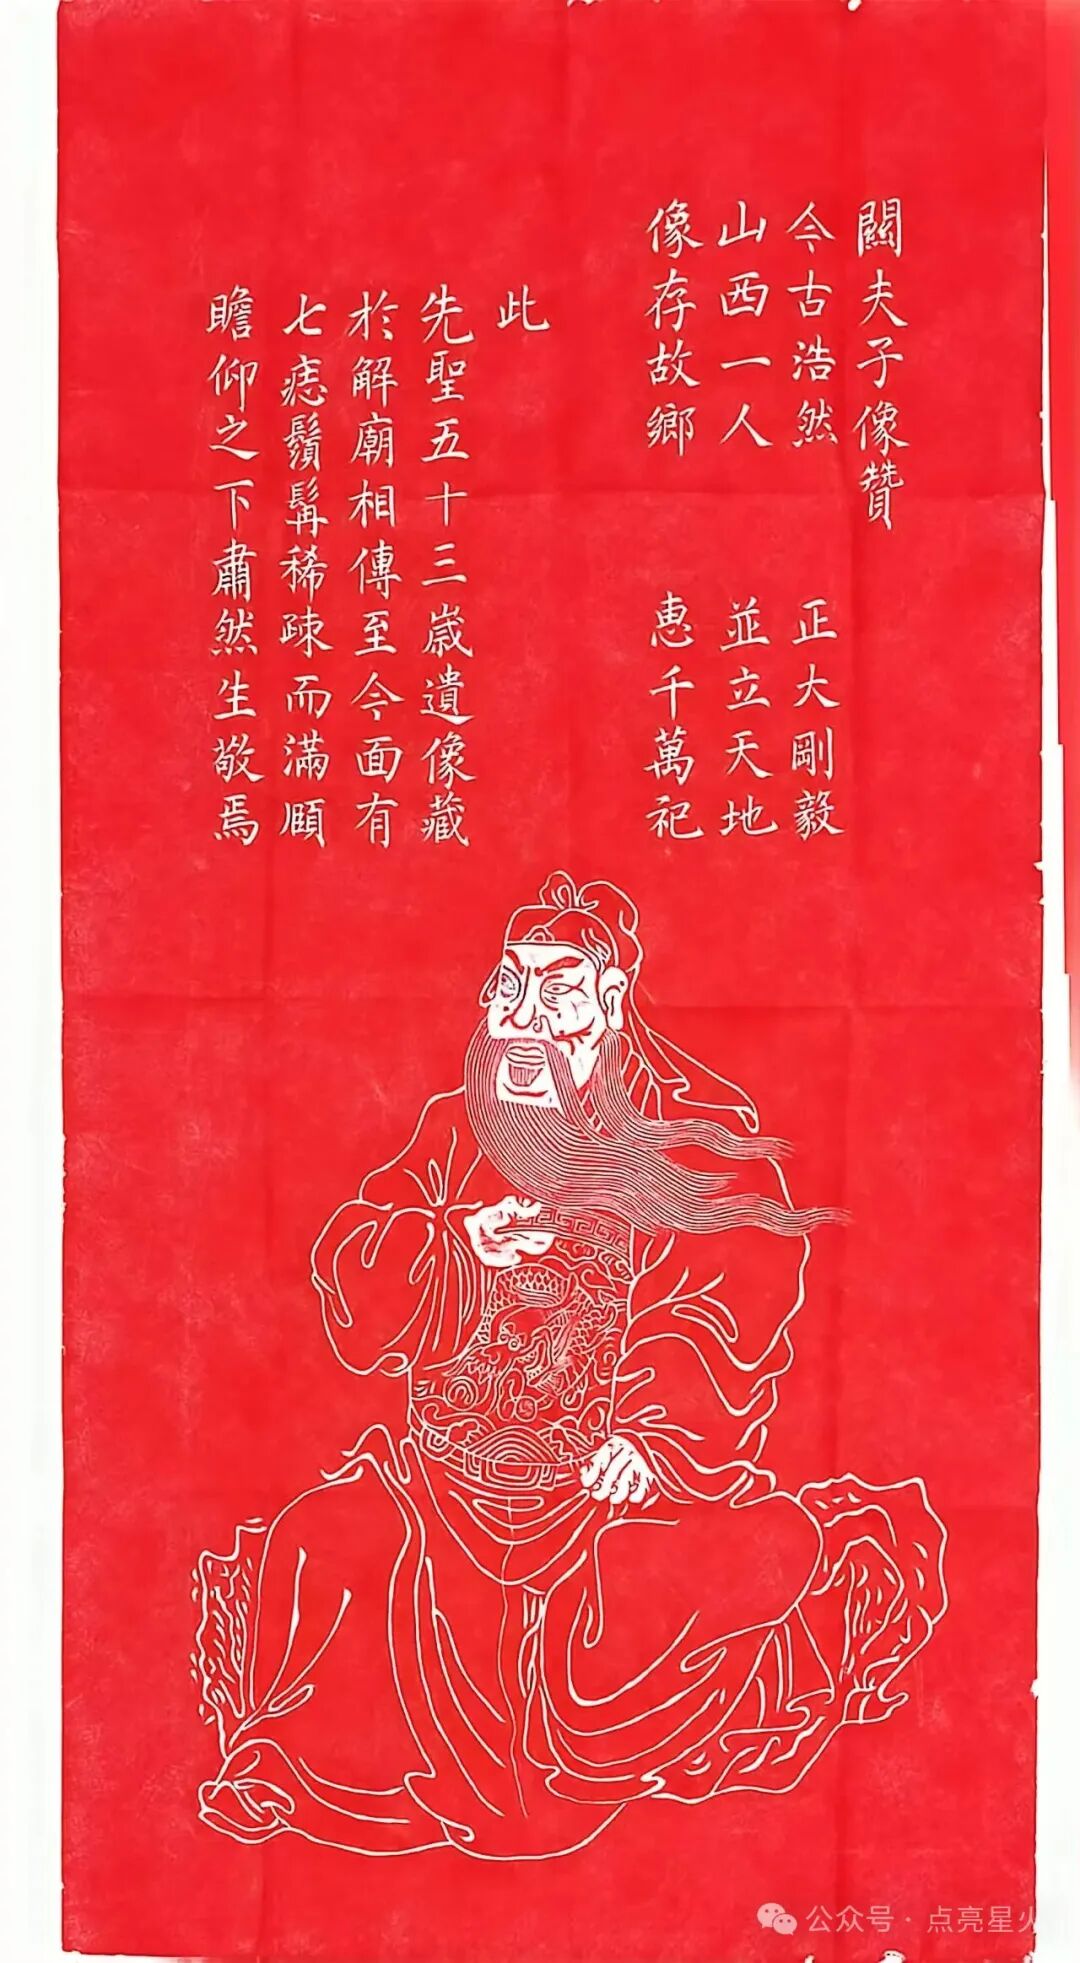 關夫子像贊
今古浩然 正大剛毅
山西一人 並立天地
像存故鄉 惠千萬祀
此
先聖五十三歲遺像藏
於解廟相傳至今面有
七痣鬚髯稀疎而滿頤
瞻仰之下肅然生敬焉
公众号 · 点亮星火